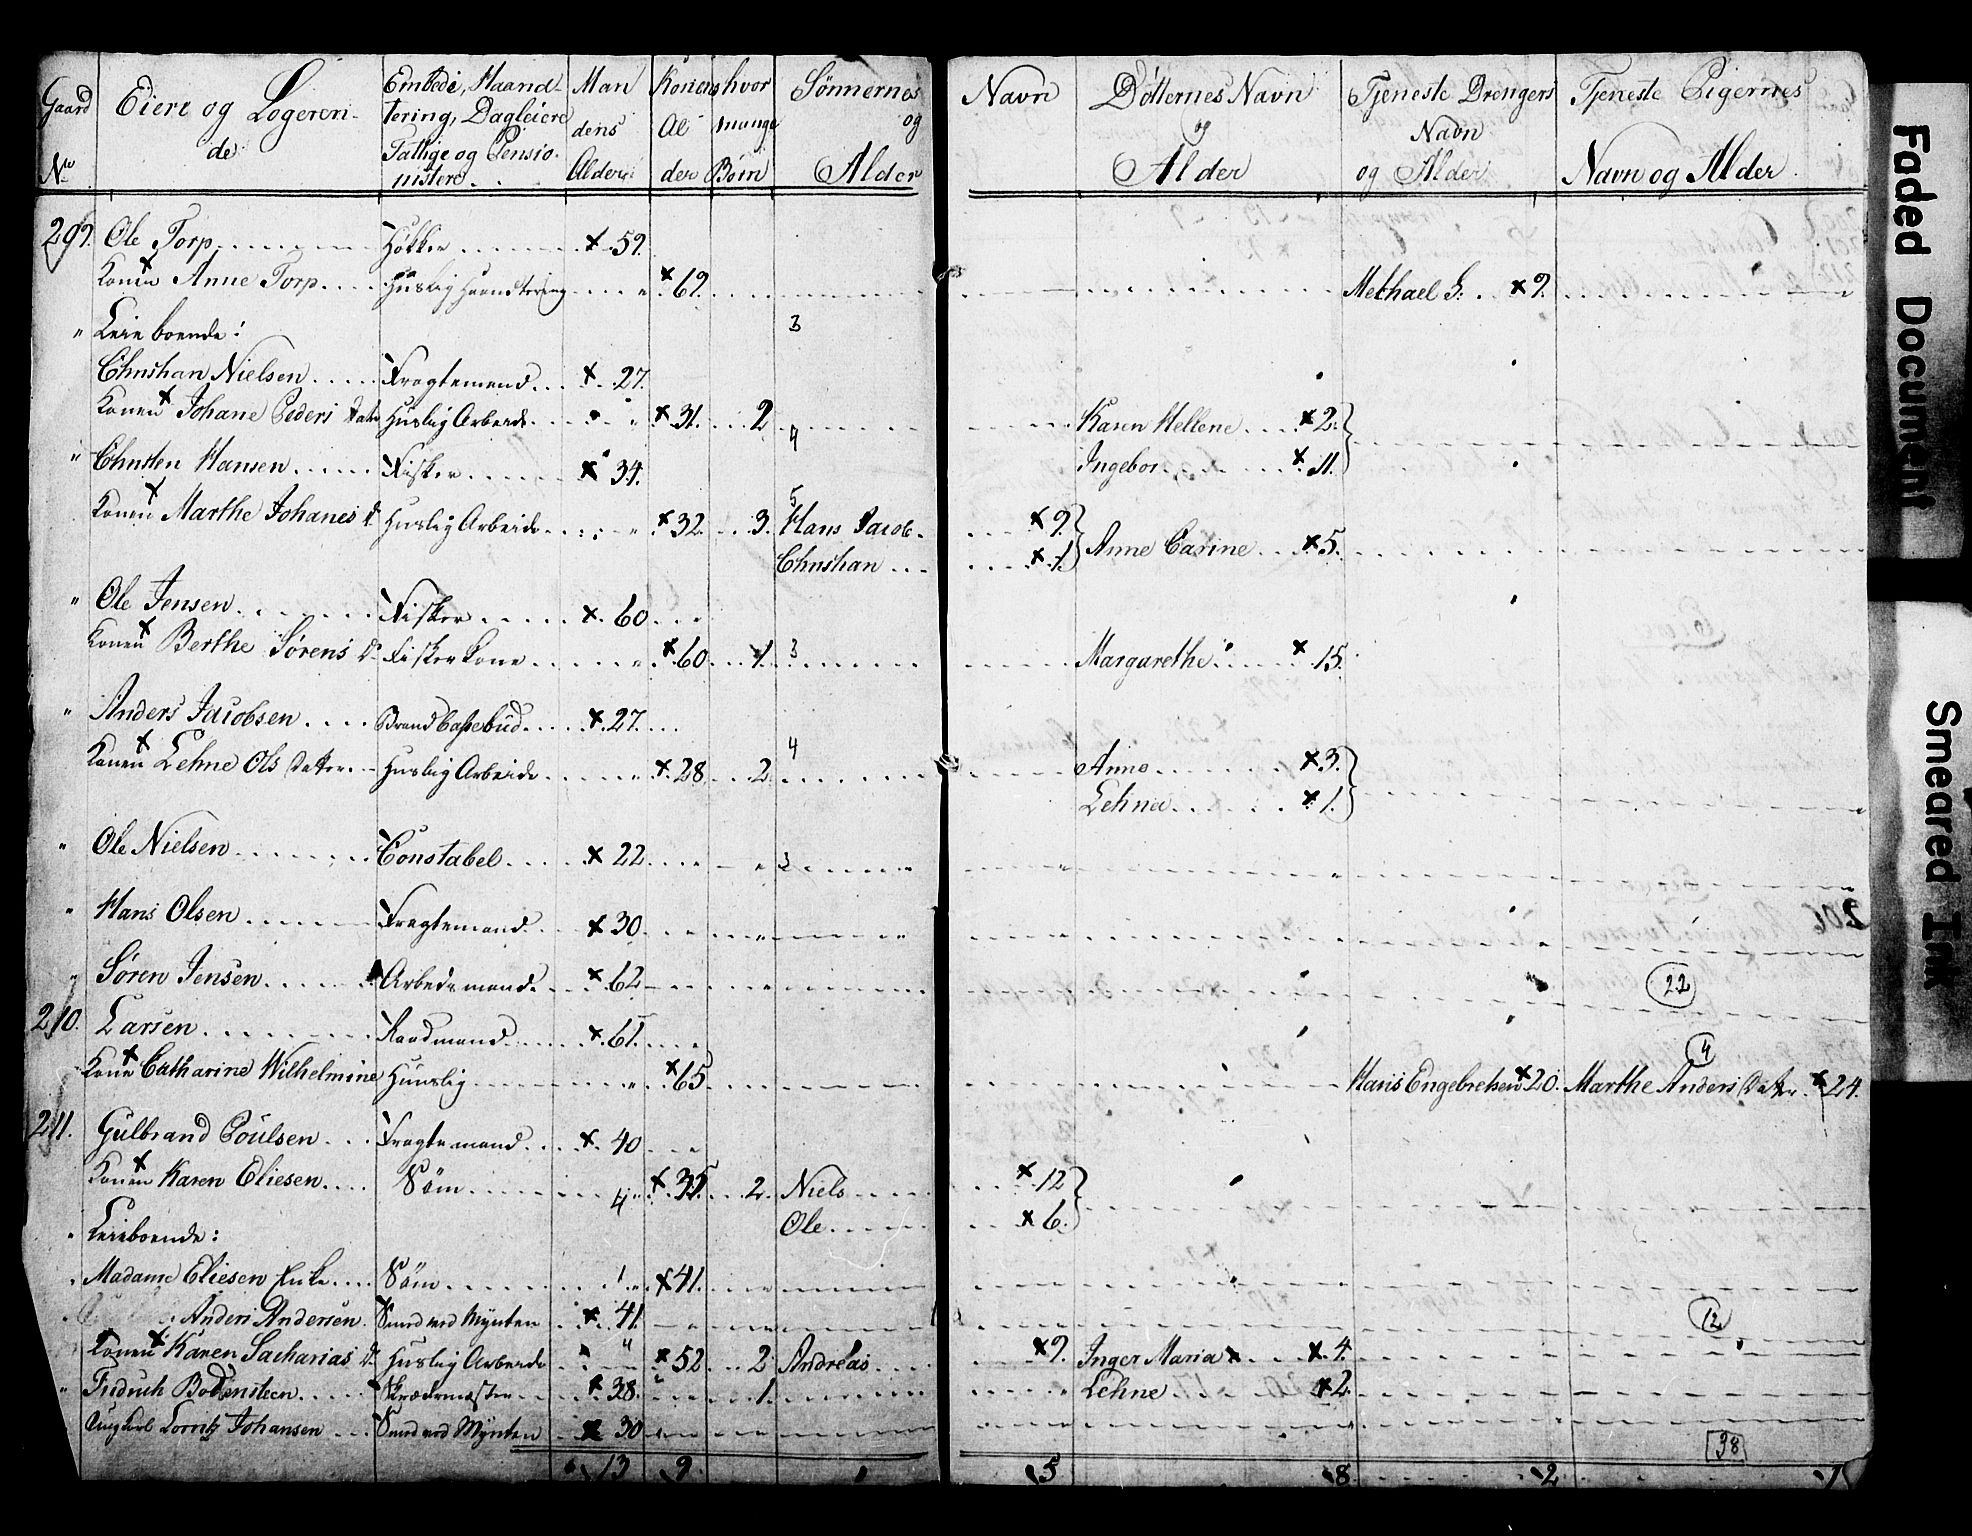 Gaard No
Eiere og Logerende
Embede, Haandtering, Dagleiere Fattige og Pensionister
Mandens Alder
Konens Alder
hvor mange Børn
Sønnernes Navn og Alder
Døtternes Navn og Alder
Tjeneste Drengers Navn og Alder
Tjeneste Pigernes Navn og Alder
209. Ole Torp Høkker x 59.
Konen Anne Torp Huslig Haandtering " x 69. Methael S: x 9.
" Leieboende: 3
Christian Nielsen Fragtemand x 27.
Konen Johane Peders Datr Huslig Arbeide " x 31. 2 Karen Hellene x 2.
4
" Christen Hansen Fisker x 34. Ingebor x 11.
Konen Marthe Johanes D Huslig Arbeide " x 32 3. 5 Hans Jacob x 9. Anne Carine x 5.
Christian x 1.
" Ole Jensen Fisker x 60
Konen Berthe Sørens D Fiskerkone " x 60 1. 3 Margarethe x 15.
" Anders Jacobsen Brandkassebud x 27.
Konen Lehne Ols Datter Huslig Arbeide " x 28 2. 4 Anne x 3.
Lehne x 1.
" Ole Nielsen Constabel x 22 " 3
" Hans Olsen Fragtemand x 30
" Søren Jensen Arbedsmand x 62
22
210. Larsen Raadmand x 61.
4
Kone Catharine Wilhelmine Huuslig " x 65 Hans Engebretsen x 20. Marthe Anders Datter x 24.
211. Gulbrand Poulsen Fragtemand x 40
Konen Karen Eliesen Søm 4 " x 35. 2. Niels x 12
" Leieboende: Ole x 6.
" Madame Eliesen Enke Søm 1 " x 41.
Anders Andersen Smed ved Mynten x 41 12
Konen Karen Sacharias D Huslig Arbeide " x 52 2 Andreas x 9. Inger Maria x 4.
" Fridrich Bodensteen Skrædermester x 38. 1. Lehne x 2
Ungkarl Lorntz Johansen Smed ved Mynten x 30
38
13 9 5 8 2 1
Faded Document
Smeared Ink